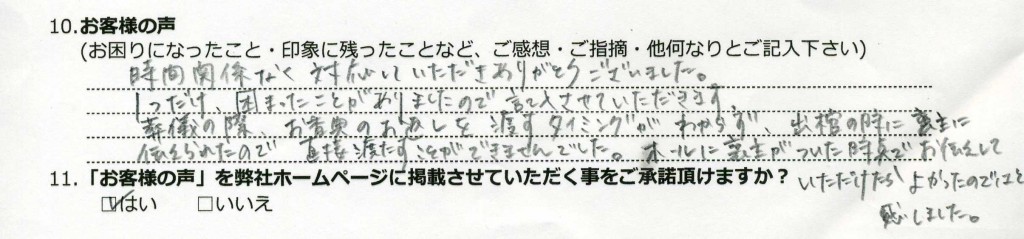 10.お客様の声
(お困りになったこと・印象に残ったことなど、ご感想・ご指摘・他何なりとご記入下さい)
時間関係なく対応していただきありがとうございました。
1つだけ、困まったことがありましたので記入させていただきます。
葬儀の際、お香典のお返しを渡すタイミングがわからず、出棺の時に喪主に
伝えられたので直接渡たすことができませんでした。ホールに喪主がついた時点でお伝えして
いただけたらよかったのではと
感しました。
11.「お客様の声」を弊社ホームページに掲載させていただく事をご承諾頂けますか?
☑はい □いいえ